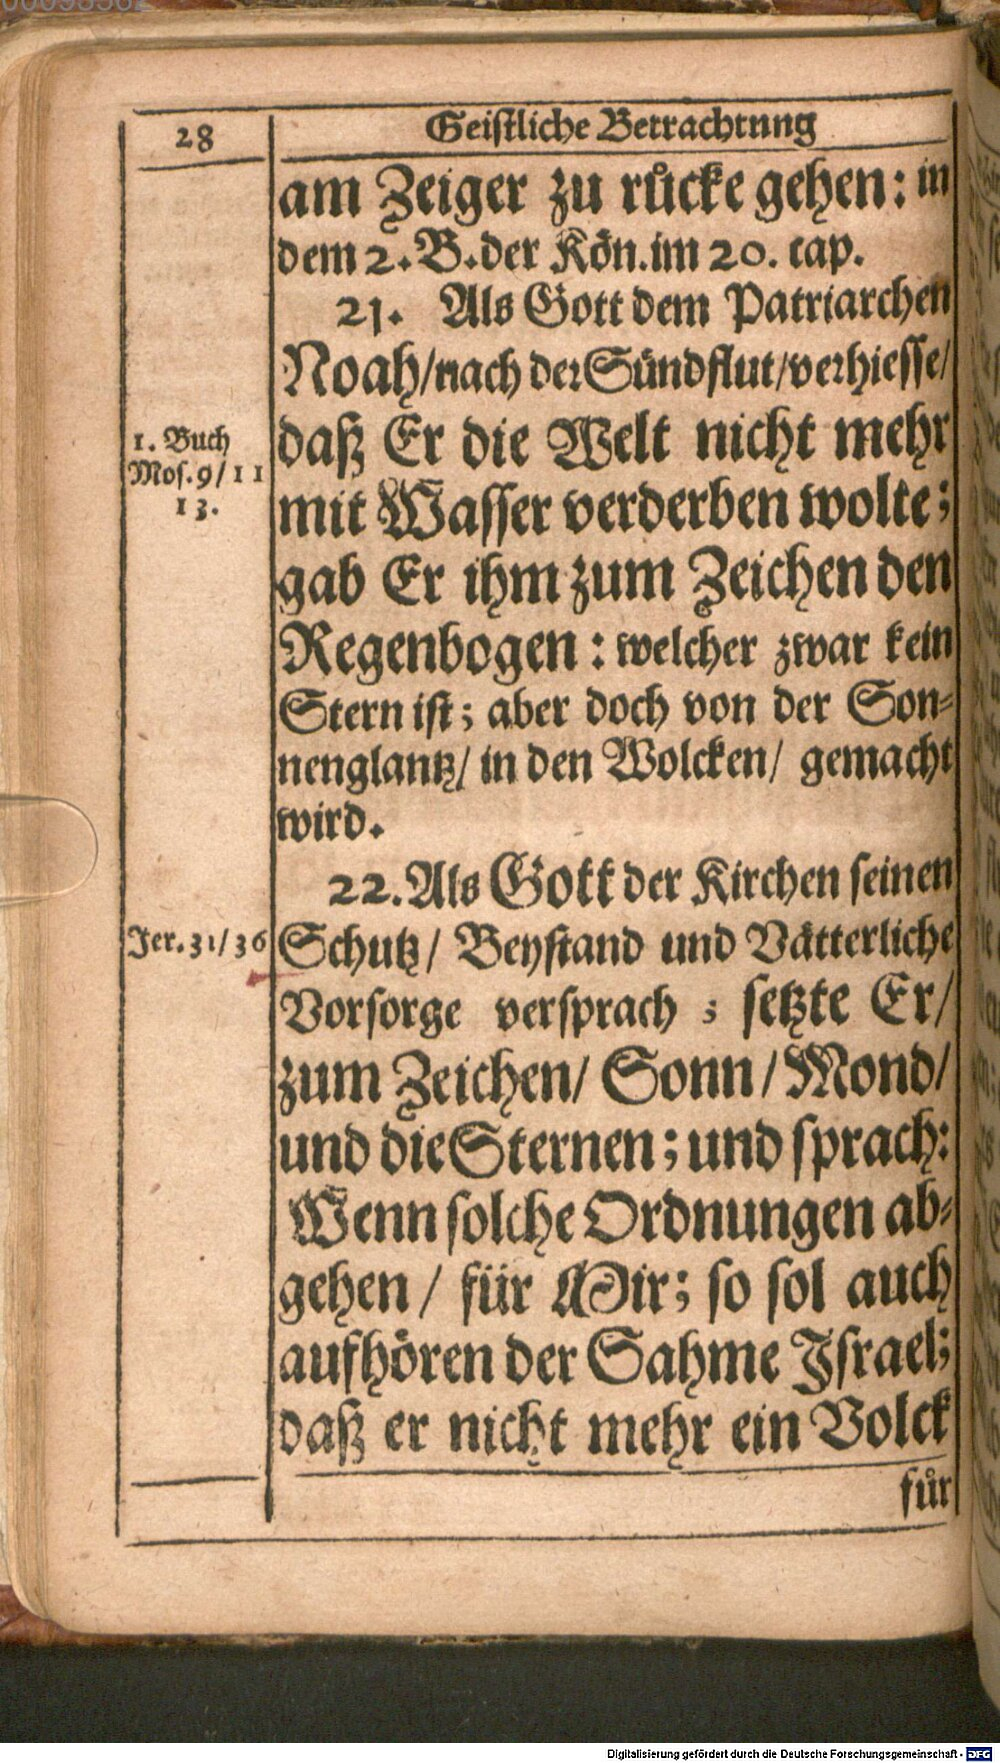 28
Geistliche Betrachtung
am Zeiger zu ruͤcke gehen: in
dem 2. B. der Kön. im 20. cap.
21. Als Gott dem Patriarchen
Noah/nach der Sündflut/verhiesse/
1. Buch
Mos. 9/11
13.
daß Er die Welt nicht mehr
mit Wasser verderben wolte;
gab Er ihm zum Zeichen den
Regenbogen: welcher zwar kein
Stern ist; aber doch von der Son-
nenglantz/ in den Wolcken/ gemacht
wird.
22. Als Gott der Kirchen seinen
Jer. 31/36
Schutz/ Beystand und Vätterliche
Vorsorge versprach; setzte Er/
zum Zeichen/ Sonn/ Mond/
und die Sternen; und sprach:
Wenn solche Ordnungen ab-
gehen/ für Mir; so sol auch
aufhören der Sahme Israel;
daß er nicht mehr ein Volck
fuͤr
Digitalisierung gefördert durch die Deutsche Forschungsgemeinschaft - DFG